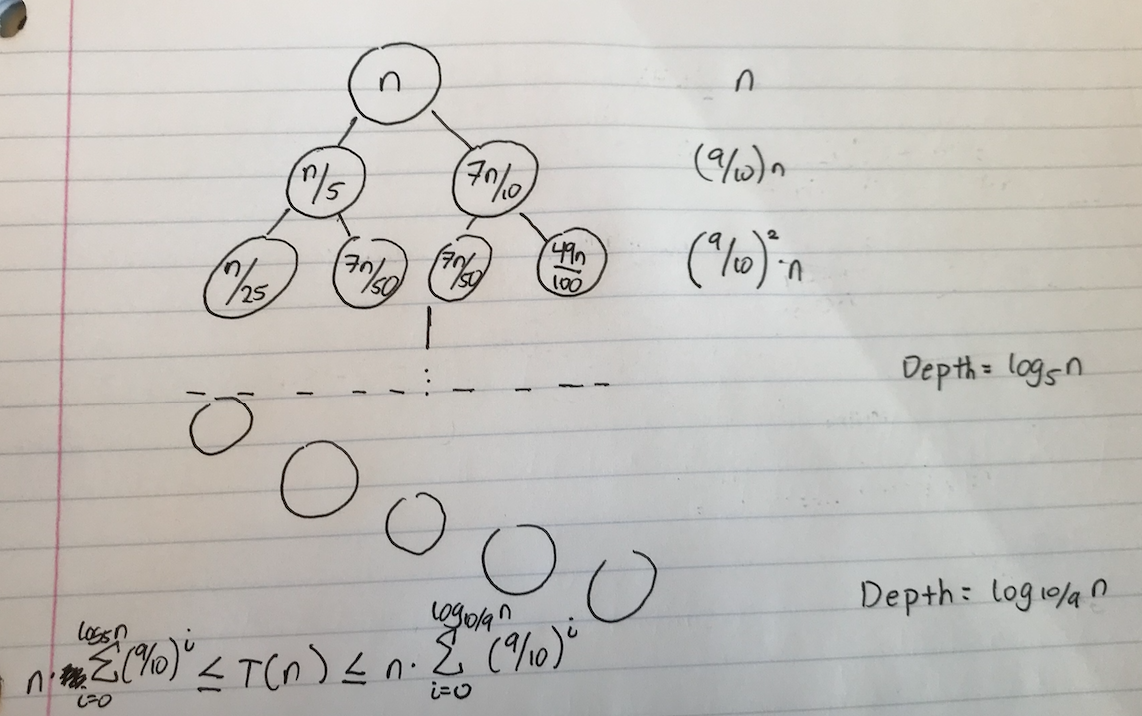 n n
n/5 7n/10 (9/10)n
n/25 7n/50 7n/50 49n/100 (9/10)²·n
Depth = log₅n
Depth = log₁₀/₉ n
n· Σ_{i=0}^{log₅n} (9/10)^i ≤ T(n) ≤ n· Σ_{i=0}^{log₁₀/₉n} (9/10)^i